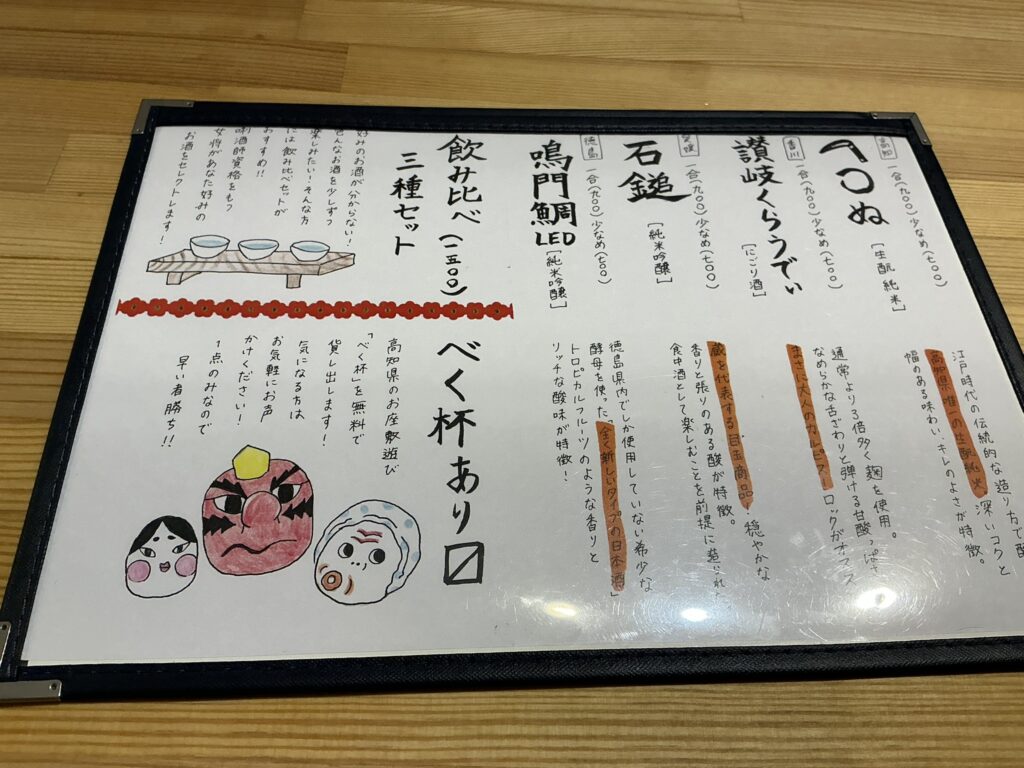 高知
一合(九〇〇)少なめ(七〇〇)
[生酛純米]
江戸時代の伝統的な造り方で
高知県唯一の生酛純米 深いコクと
幅のある味わい、キレのよさが特徴。
香川
一合(九〇〇)少なめ(七〇〇)
讃岐くらうでぃ
[にごり酒]
通常より3倍多く麹を使用。
なめらかな舌ざわりと弾ける甘酸っぱ
まさに大人のカルピス!ロックがオススメ
愛媛
一合(九〇〇)少なめ(七〇〇)
石鎚
[純米吟醸]
蔵を代表する目玉商品 穏やかな
香りと張りのある酸が特徴。
食中酒として楽しむことを前提に造られた
徳島
一合(九〇〇)少なめ(七〇〇)
鳴門鯛
LED
[純米吟醸]
徳島県内でしか使用していない希少な
酵母を使った、「全く新しいタイプの日本酒」
トロピカルフルーツのような香りと
リッチな酸味が特徴!
飲み比べ(一五〇〇)
三種セット
好みのお酒が分からない!
色んなお酒を少しずつ
楽しみたい!そんな方
には飲み比べセットが
おすすめ!!
唎酒師資格をもつ
女将があなた好みの
お酒をセレクトします!
べく杯あり〼
高知県のお座敷遊び
「べく杯」を無料で
貸し出します!
気になる方は
お気軽にお声
かけください!
1点のみなので
早い者勝ち!!